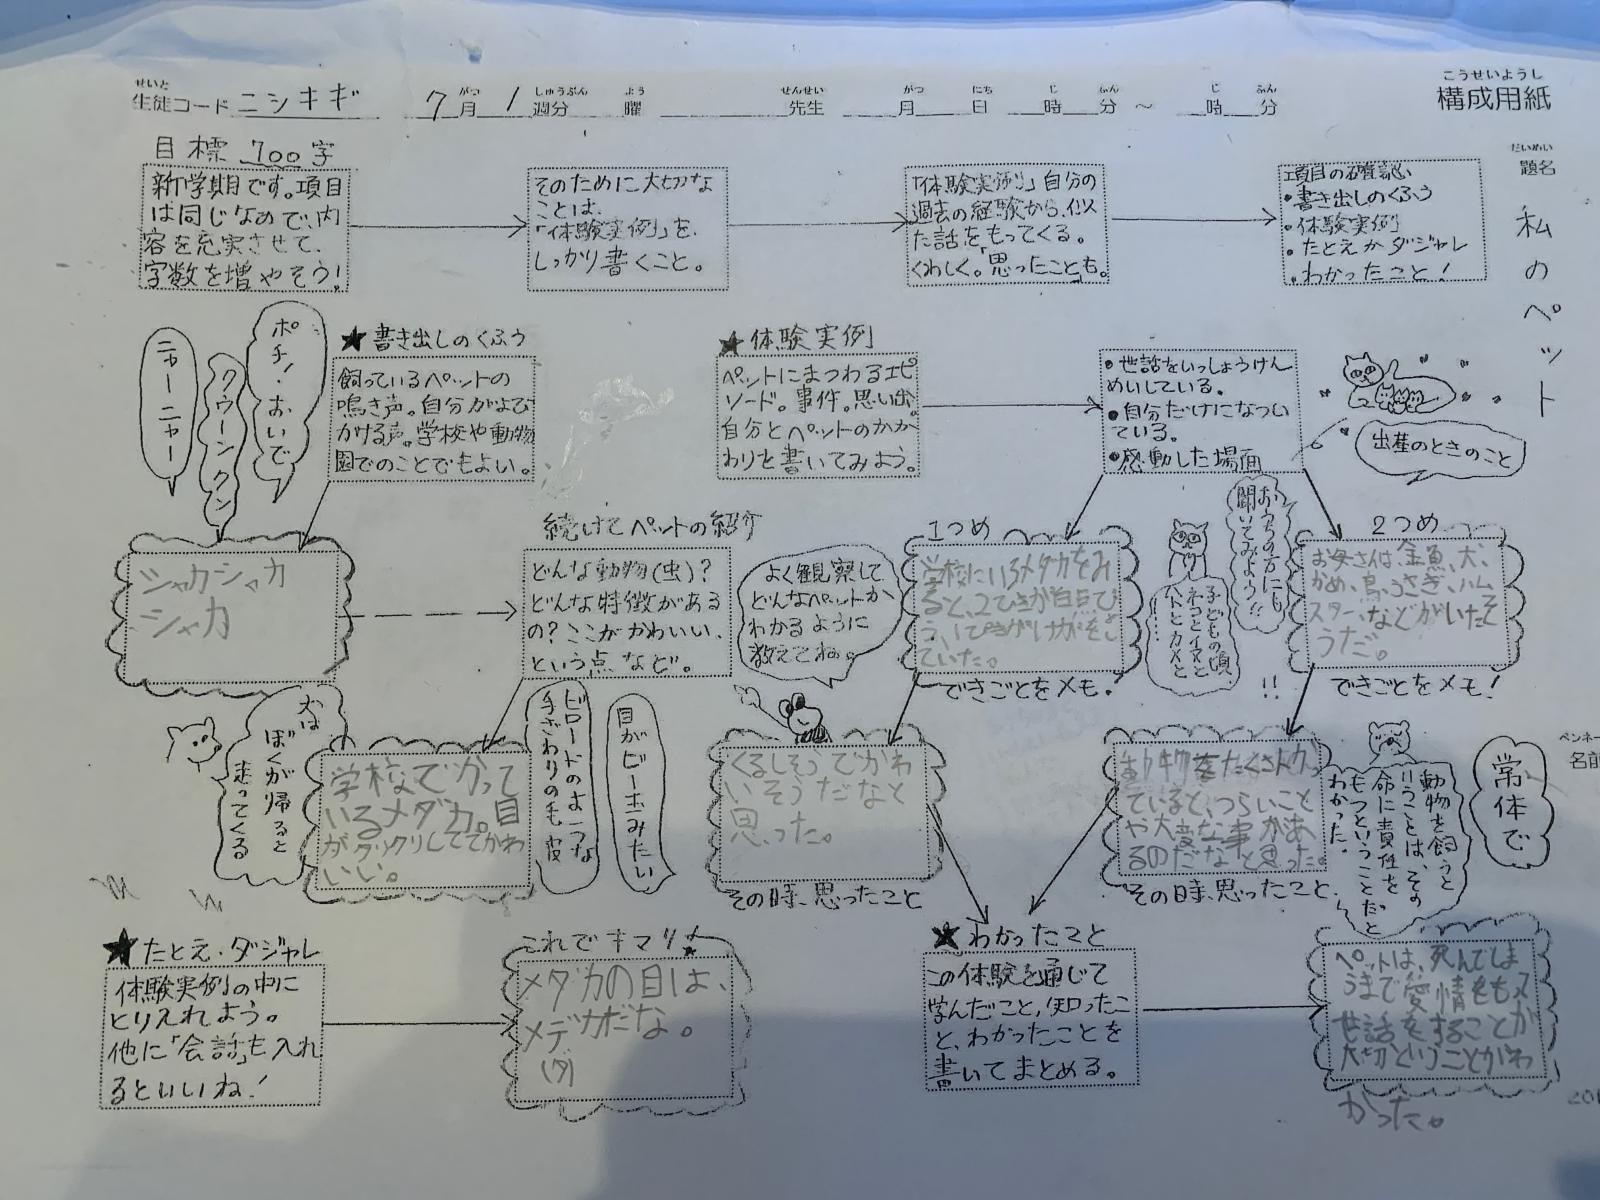 せいと
生徒コード ニシキギ 7月 1週分 曜 先生 月 日 時 分 ~ 時 分
がつ しゅうぶん よう せんせい がつ にち じ ふん じ ふん
こうせいようし
構成用紙
だいめい
題名
私のペット
目標 700字
新学期です。項目
は同じなので、内
容を充実させて、
字数を増やそう!
そのために大切な
ことは、
「体験実例」を、
しっかり書くこと。
「体験実例」自分の
過去の経験から、似
た話をもってくる。
くわしく。「思ったことも」。
項目の確認
・書き出しのくふう
・体験実例
・たとえかダジャレ
・わかったこと!
ニャーニャー
クウーンクン
ポチ!おいで
★書き出しのくふう
飼っているペットの
鳴き声。自分がよび
かける声。学校や動物
園でのことでもよい。
★体験実例
ペットにまつわるエピ
ソード。事件。思い出。
自分とペットのかか
わりを書いてみよう。
・世話をいっしょうけん
めいしている。
・自分だけになつい
ている。
・感動した場面
出産のときのこと
シャカシャカ
シャカ
続けてペットの紹介
どんな動物(虫)?
どんな特徴がある
の?ここがかわいい、
という点など。
よく観察して
どんなペットか
わかるように
教えてね。
1つめ
学校にいるメダカをみ
ると、2ひきが白点びょ
う、1ぴきがけがをし
ていた。
できごとをメモ!
おうちの方にも
聞いてみよう!!
子どもの頃
ネコとイヌと
ハトとカメと
……
!!
2つめ
お母さんは、金魚、犬、
かめ、鳥、うさぎ、ハム
スター、などがいたそ
うだ。
できごとをメモ!
犬は
ぼくが帰ると
走ってくる
学校でかって
いるメダカ。目
がクックリしててかわ
いい。
ビロードのような
手ざわりの毛皮
目がビー玉みたい
くるしそうでかわ
いそうだなと
思った。
その時、思ったこと
生き物をたくさんかっ
ていると、つらいこと
や大変な事があ
るのだなと思った。
その時、思ったこと
動物を飼うと
いうことは、その
命に責任を
もつということだと
わかった。
常体で
ペンネーム
名前
★たとえ・ダジャレ
体験実例の中に
とり入れよう。
他に「会話」も入れ
るといいね!
これでキマリ!
メダカの目は、
メデカだな。
(ダ)
★わかったこと
この体験を通じて
学んだこと、知ったこ
と、わかったことを
書いてまとめる。
ペットは、死んでしま
うまで愛情をもって
世話をすることが
大切ということがわ
かった。